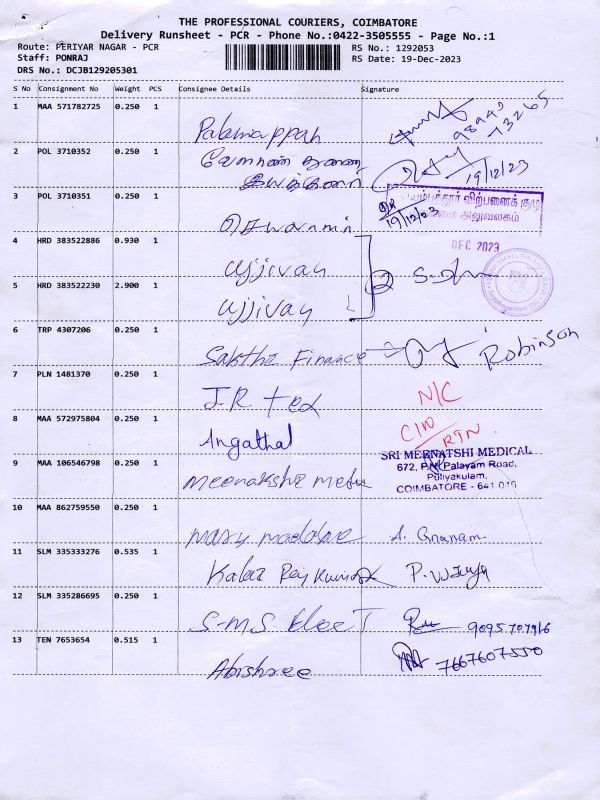 THE PROFESSIONAL COURIERS, COIMBATORE
Delivery Runsheet - PCR - Phone No.:0422-3505555 - Page No.:1
Route: PERIYAR NAGAR - PCR RS No.: 1292053
Staff: PONRAJ RS Date: 19-Dec-2023
DRS No.: DCJB129205301
S No Consignment No Weight PCS Consignee Details Signature
1 MAA 571782725 0.250 1
Palamappah
2 POL 3710352 0.250 1
19/12/23
3 POL 3710351 0.250 1
விற்பனைக் குழு
அலுவலகம்
19/12/23
DEC 2023
4 HRD 383522886 0.930 1
Ujjivan
5 HRD 383522230 2.900 1
Ujjivan
6 TRP 4307206 0.250 1
Sakthi Finance Robinson
7 PLN 1481370 0.250 1
J.R. ted N/C
8 MAA 572975804 0.250 1
Angathal RTN
9 MAA 106546798 0.250 1
SRI MEENATSHI MEDICAL
672, P.N. Palayam Road,
Puliyakulam,
COIMBATORE - 641 016
10 MAA 862759550 0.250 1
A. Gnanam
11 SLM 335333276 0.535 1
Kalai Raykumar
12 SLM 335286695 0.250 1
S-M-S
13 TEN 7653654 0.515 1
Abishree 7667607550